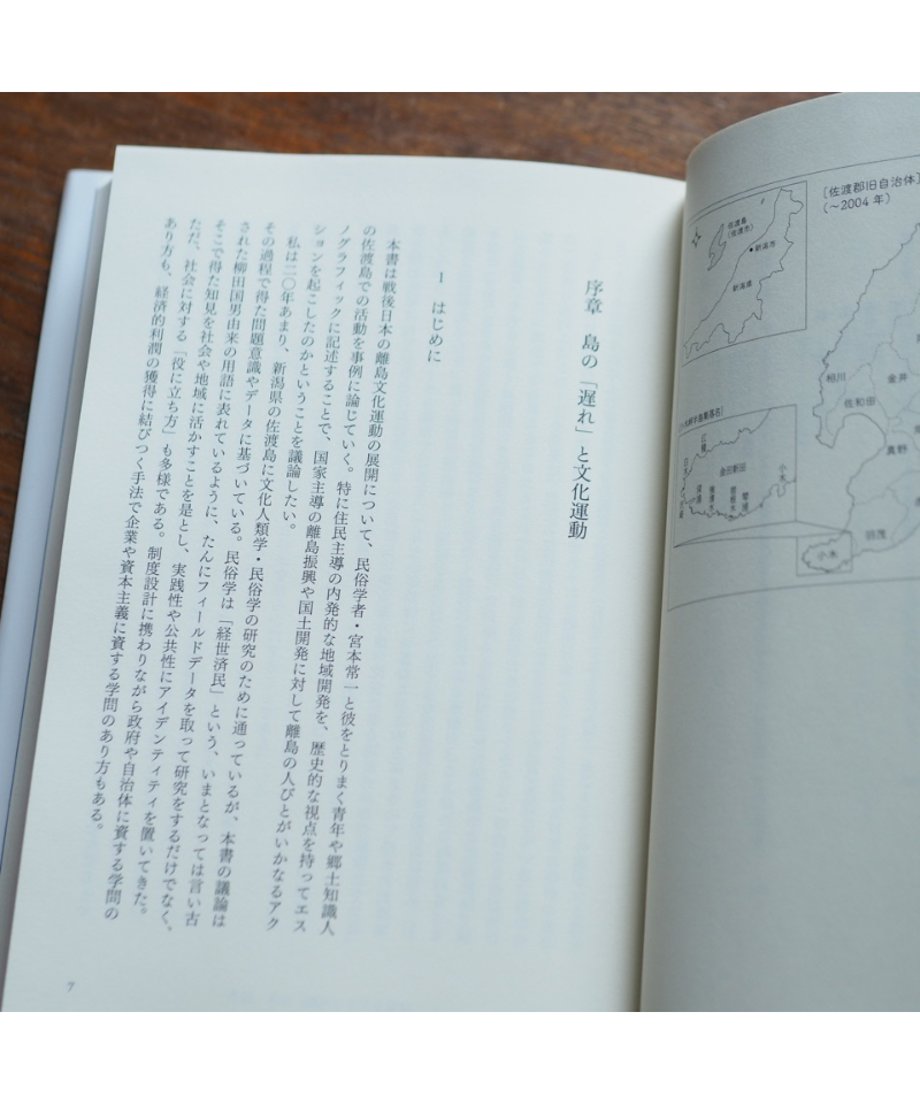 [佐渡郡旧自治体]
(〜2004年)
佐渡島
(佐渡市)
新潟市
新潟県
相川
金井
佐和田
真野
羽茂
小木
金田新田
小木
江積
深浦
琴浦
序章　島の「遅れ」と文化運動
1　はじめに
本書は戦後日本の離島文化運動の展開について、民俗学者・宮本常一と彼をとりまく青年や郷土知識人
の佐渡島での活動を事例に論じていく。特に住民主導の内発的な地域開発を、歴史的な視点を持ってエス
ノグラフィックに記述することで、国家主導の離島振興や国土開発に対して離島の人びとがいかなるアク
ションを起こしたのかということを議論したい。
私は二〇年あまり、新潟県の佐渡島に文化人類学・民俗学の研究のために通っているが、本書の議論は
その過程で得た問題意識やデータに基づいている。民俗学は「経世済民」という、いまとなっては言い古
された柳田国男由来の用語に表れているように、たんにフィールドデータを取って研究をするだけでなく、
そこで得た知見を社会や地域に活かすことを是とし、実践性や公共性にアイデンティティを置いてきた。
ただ、社会に対する「役に立ち方」も多様である。制度設計に携わりながら政府や自治体に資する学問の
あり方も、経済的利潤の獲得に結びつく手法で企業や資本主義に資する学問のあり方もある。
7